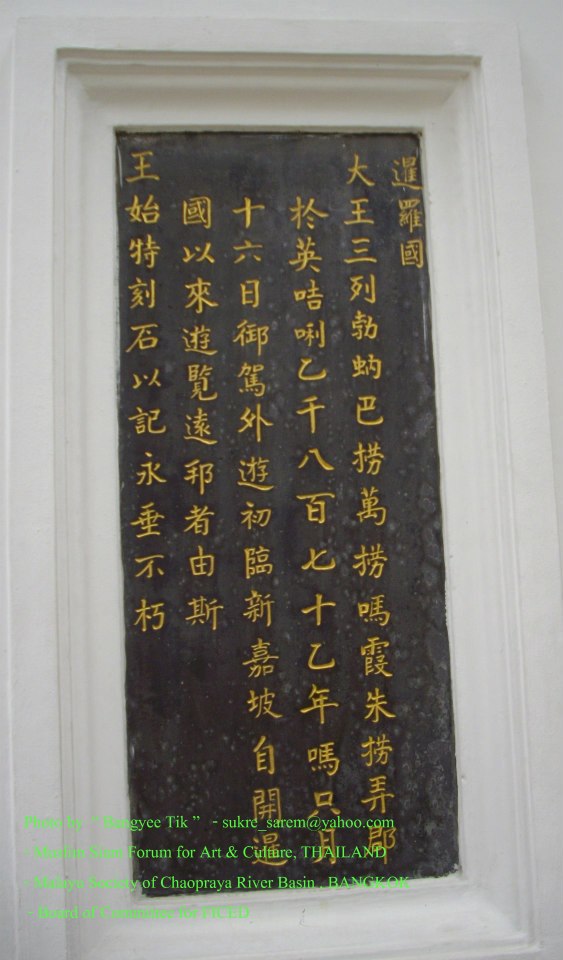 暹羅國
大王三列勃蚋巴撈萬撈嗎霞朱撈弄郡
扵英咭唎乙千八百七十乙年嗎只月
十六日御駕外遊初臨新嘉坡自開暹
國以來遊覽遠邦者由斯
王始特刻石以記永垂不朽
Photo by " Bangyee Tik " - sukre_sarem@yahoo.com
- Muslim Siam Forum for Art & Culture, THAILAND
- Malayu Society of Chaopraya River Basin , BANGKOK
- Board of Committee for